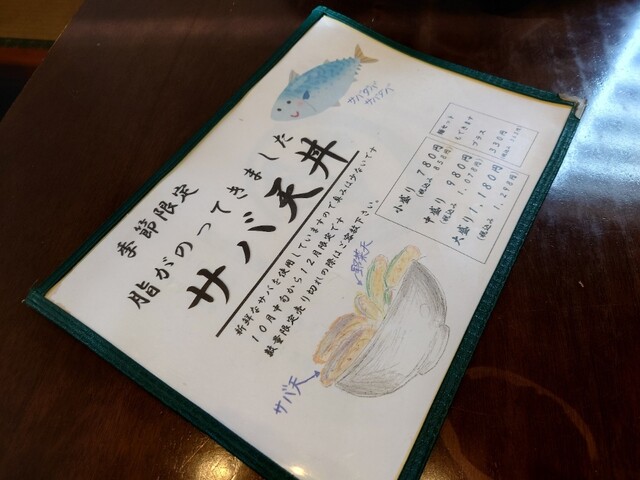 季節限定
脂がのってきました
サバ天丼
新鮮なサバを使用していますので臭みは少ないです
10月中旬から12月限定です
数量限定売り切れの際はご容赦下さい
小盛り 780円
(税込み 858円)
中盛り 980円
(税込み 1,078円)
大盛り 1,180円
(税込み 1,298円)
できます
プラス 330円
野菜天
サバ天